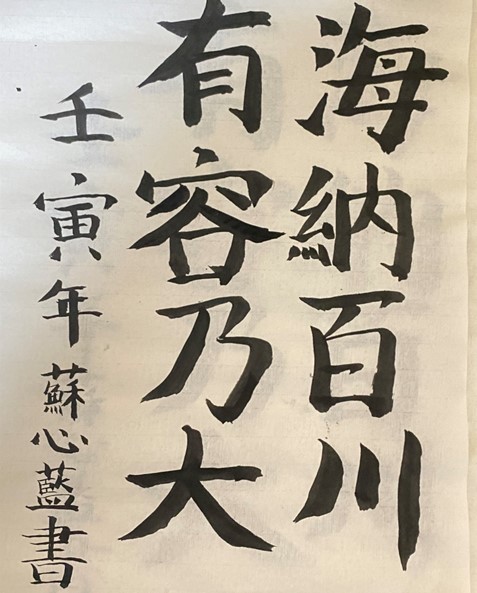 海納百川
有容乃大
壬寅年蘇心藍書